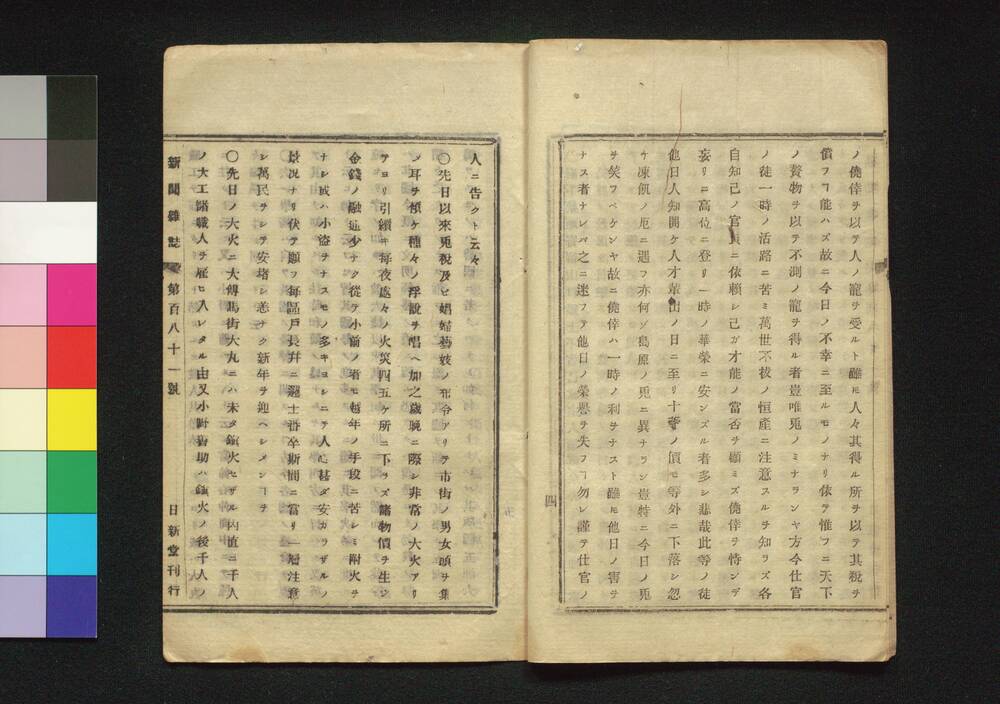 ノ僥倖ヲ以テ人ノ寵ヲ受ルト雖モ人々其得ル所ヲ以テ其税ヲ
償フヿ能ハズ故ニ今日ノ不幸ニ至ルモノナリ依テ惟フニ天下
ノ贅物ヲ以テ不測ノ寵ヲ得ル者豈唯兎ノミナランヤ方今仕官
ノ徒一時ノ活路ニ苦ミ萬世不拔ノ恒產ニ注意スルヲ知ラズ各
自知己ノ官員ニ依賴シ己ガ才能ノ當否ヲ顧ミズ僥倖ヲ恃ンデ
妄リニ高位ニ登リ一時ノ華榮ニ安ンズル者多シ悲哉此等ノ徒
他日人知開ケ人才輩出ノ日ニ至リ十等ノ價モ等外ニ下落シ忽
チ凍飢ノ厄ニ遇フ亦何ゾ島原ノ兎ニ異ナラン豈特ニ今日ノ兎
ヲ笑フベケンヤ故ニ僥倖ハ一時ノ利ヲナスト雖モ他日ノ害ヲ
ナス者ナレバ之ニ迷フテ他日ノ榮譽ヲ失フヿ勿レ謹テ仕官ノ
四
人ニ告クト云々
〇先日以來兎稅及ヒ娼婦藝妓ノ布令アリテ市街ノ男女頭ヲ集
メ耳ヲ傾ケ種々ノ浮說ヲ唱ヘ加之歲晩ニ際シ非常ノ大火アリ
テヨリ引續キ每夜處々ノ火災四五ケ所ニ下ラズ諸物價ヲ生シ
金錢ノ融通少ナク從テ小前ノ者モ越年ノ手段ニ苦シミ附火ヲ
ナシ或ハ小盜ヲナスモノ多キヨシニテ人心甚ダ安カラザルノ
景況ナリ伏テ願フ每區戶長幷ニ邏士番卒斯間ニ當リ一層注意
シ萬民ヲシテ安堵シ恙ナク新年ヲ迎ヘシメンヿヲ
〇先日ノ大火ニ大傳馬街大丸ニハ未タ鎭火セザル内直ニ千人
ノ大工諸職人ヲ雇ヒ入レタル由又小野善助ハ鎭火ノ後千人ノ
新聞雜誌 第百八十一號 日新堂刊行